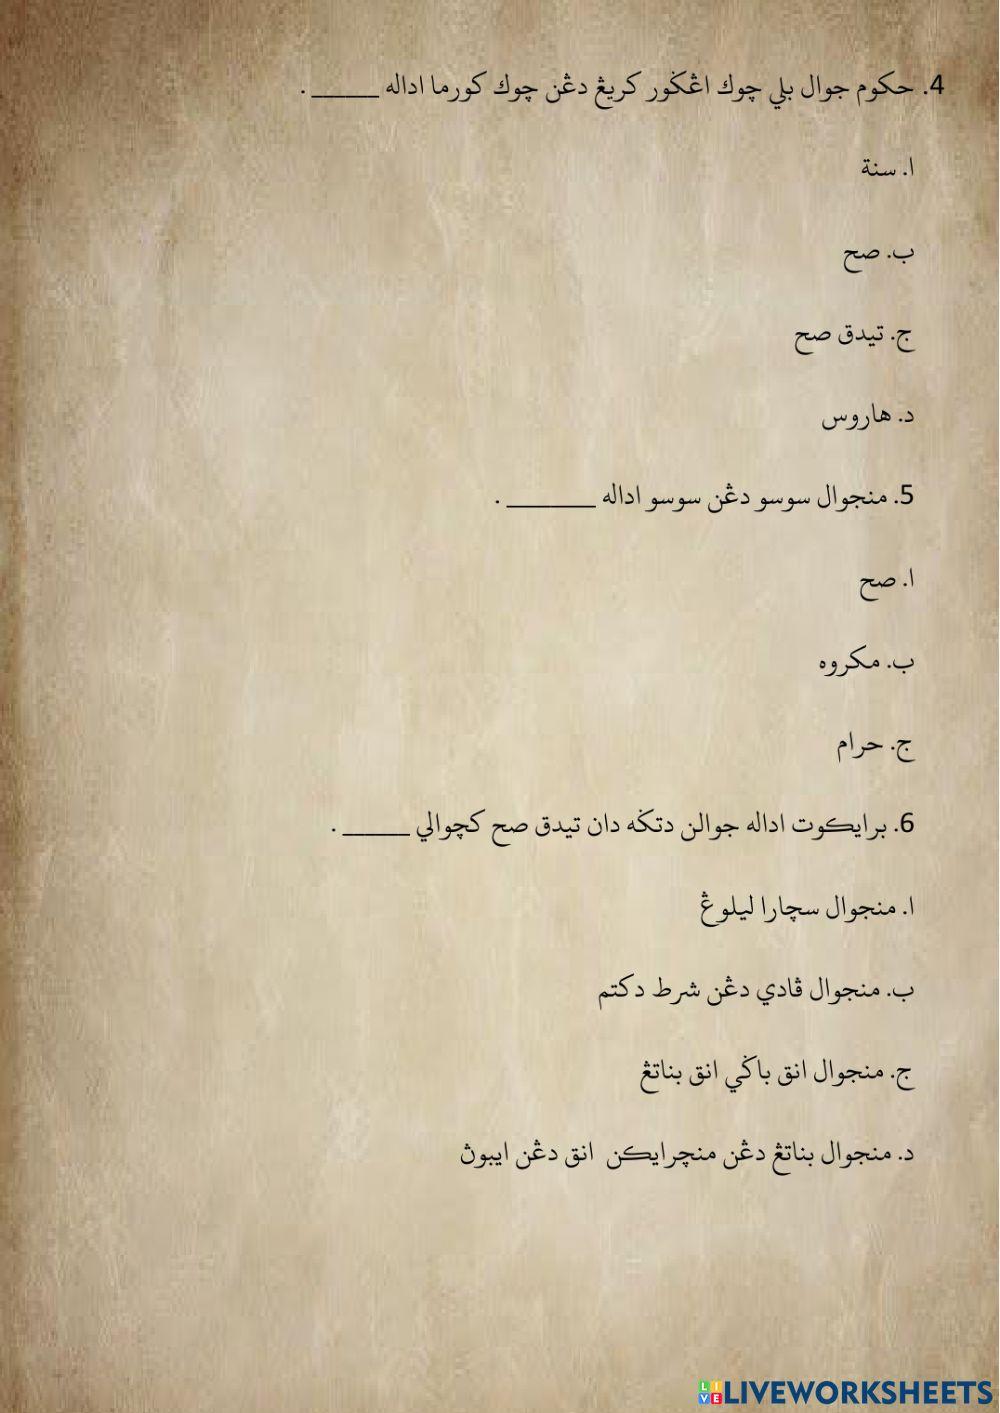 4. حكوم جوال بلي چوك اڠݢور كريڠ دڠن چوك كورما اداله _____ .
ا. سنة
ب. صح
ج. تيدق صح
د. هاروس
5. منجوال سوسو دڠن سوسو اداله _______ .
ا. صح
ب. مكروه
ج. حرام
6. برايكوت اداله جوالن دتݢه دان تيدق صح كچوالي _____ .
ا. منجوال سچارا ليلوڠ
ب. منجوال ڤادي دڠن شرط دكتم
ج. منجوال انق باݢي انق بناتڠ
د. منجوال بناتڠ دڠن منچرايكن انق دڠن ايبوڽ
LIVEWORKSHEETS